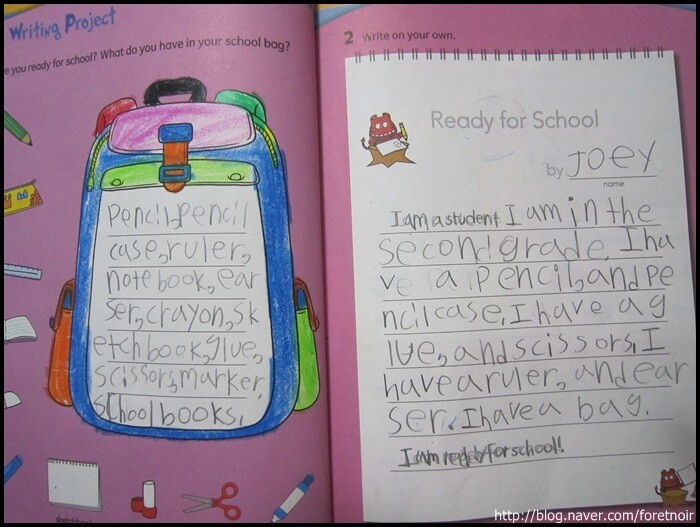 Writing Project
e you ready for school? What do you have in your school bag?
pencil, pencil
case, ruler,
notebook, ear
ser, crayon, sk
etchbook, glue,
scissors, marker,
school books.
2 Write on your own.
Ready for School
by JOEY
name
I am a student I am in the
second grade. I ha
ve a pencil, and pe
ncil case, I have a g
lue, and scissors, I
have a ruler, and ear
ser. I have a bag.
I am ready for school!
http://blog.naver.com/foretnoir